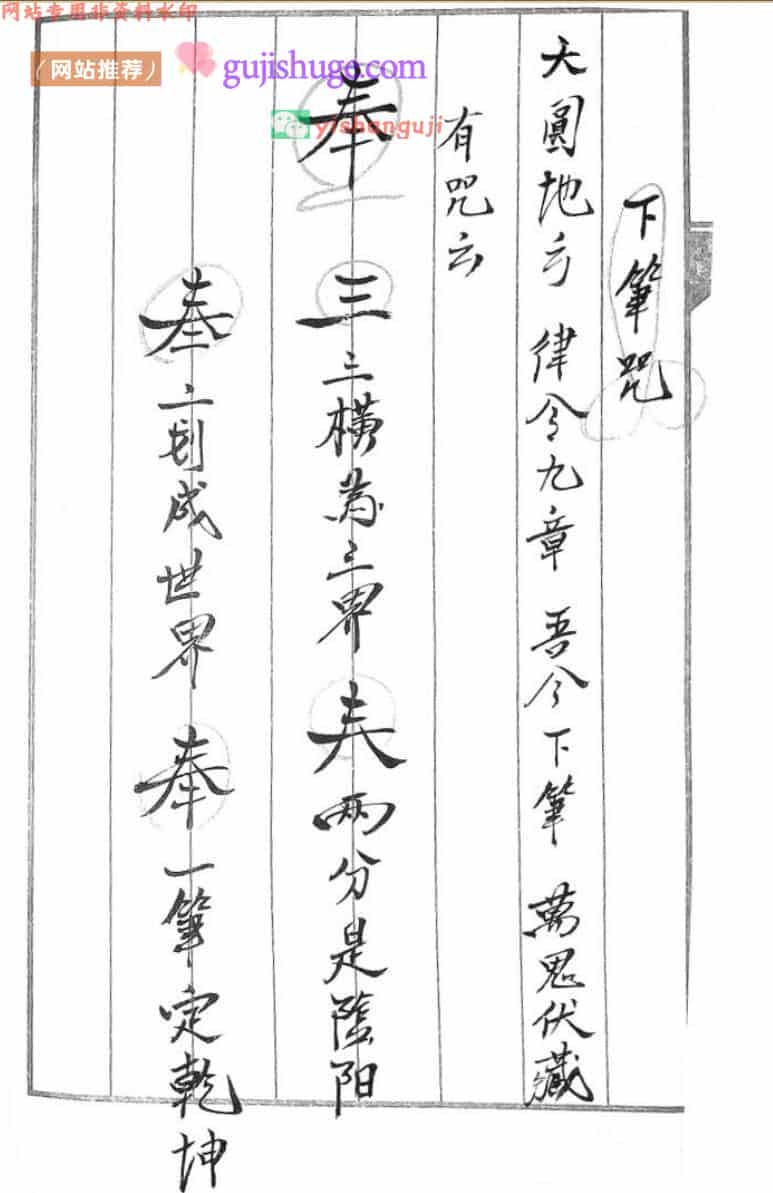 网站专用非资料水印
（网站推荐）
gujishuge.com
yishanguji
下筆咒
天圓地方 律令九章 吾今下筆 萬鬼伏藏
有咒云
奉 三 三橫為三界 𡗗 兩分是陰阳
二划成世界 奉 一筆定乾坤